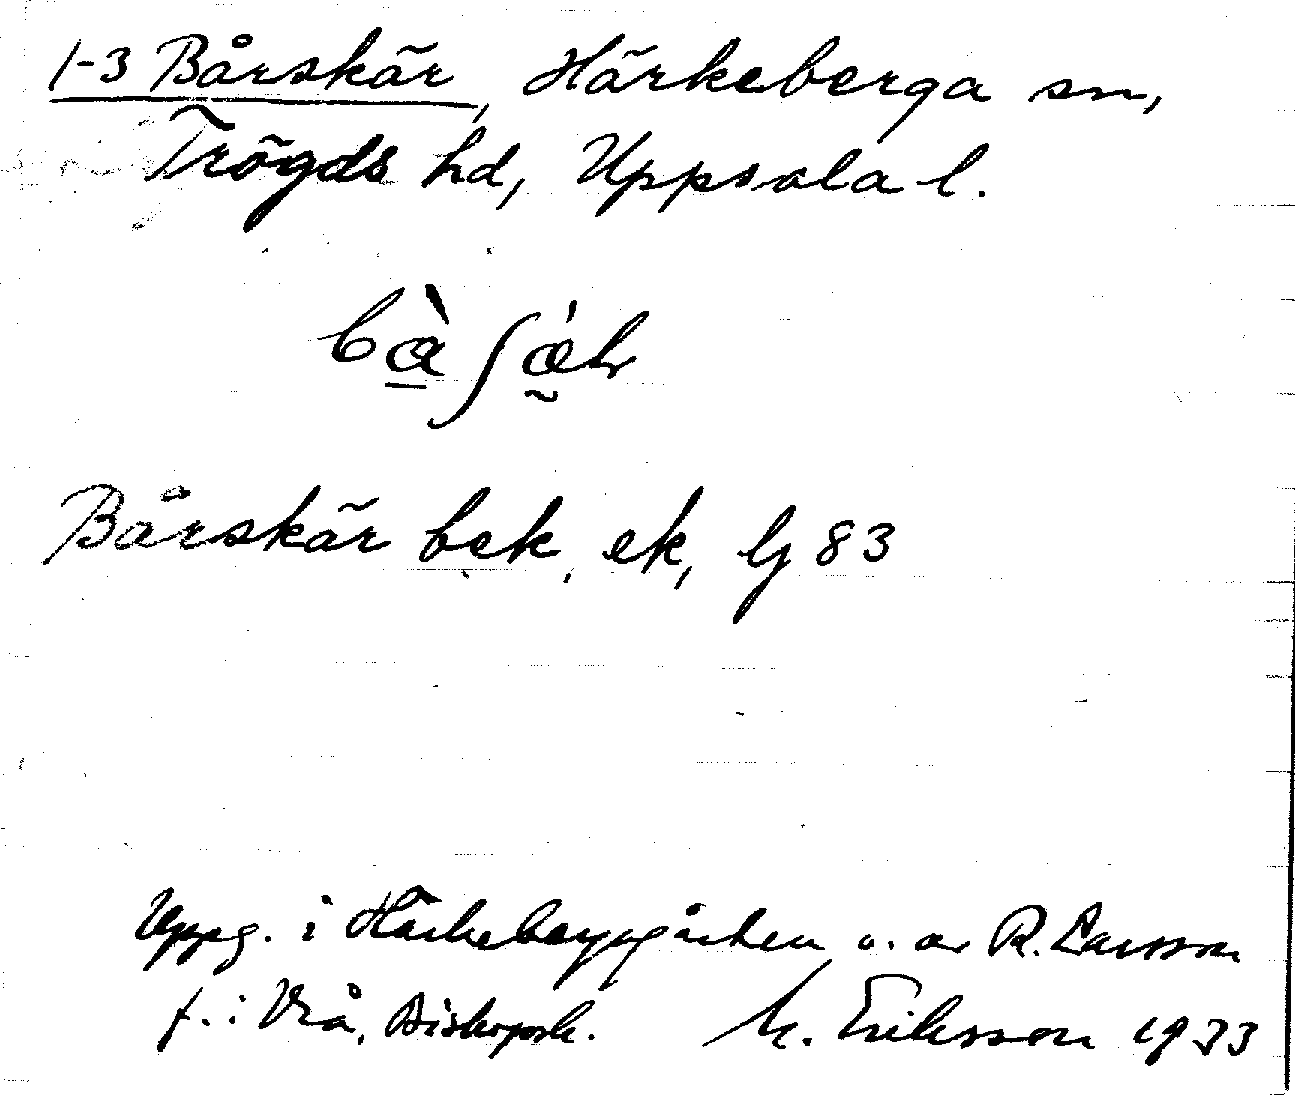 1-3 Bårskär, Härkeberga sn,
Trögds hd, Uppsala l.
Bårskär bek, ek, lj 83
Uppg. i Härkeberga o. av R. Larsson
f. i Vrå, Biskopsk. M. Eriksson 1933